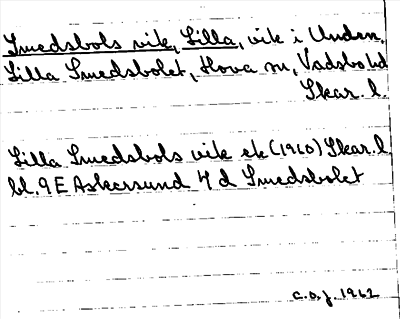 Smedsbols vik, Lilla, vik i Unden,
Lilla Smedsbolet, Hova sn, Vadsbo hd
Skar. l.
Lilla Smedsbols vik ek (1960) Skar. l
bl. 9E Askersund 4 d Smedsbolet
C.O.J. 1962